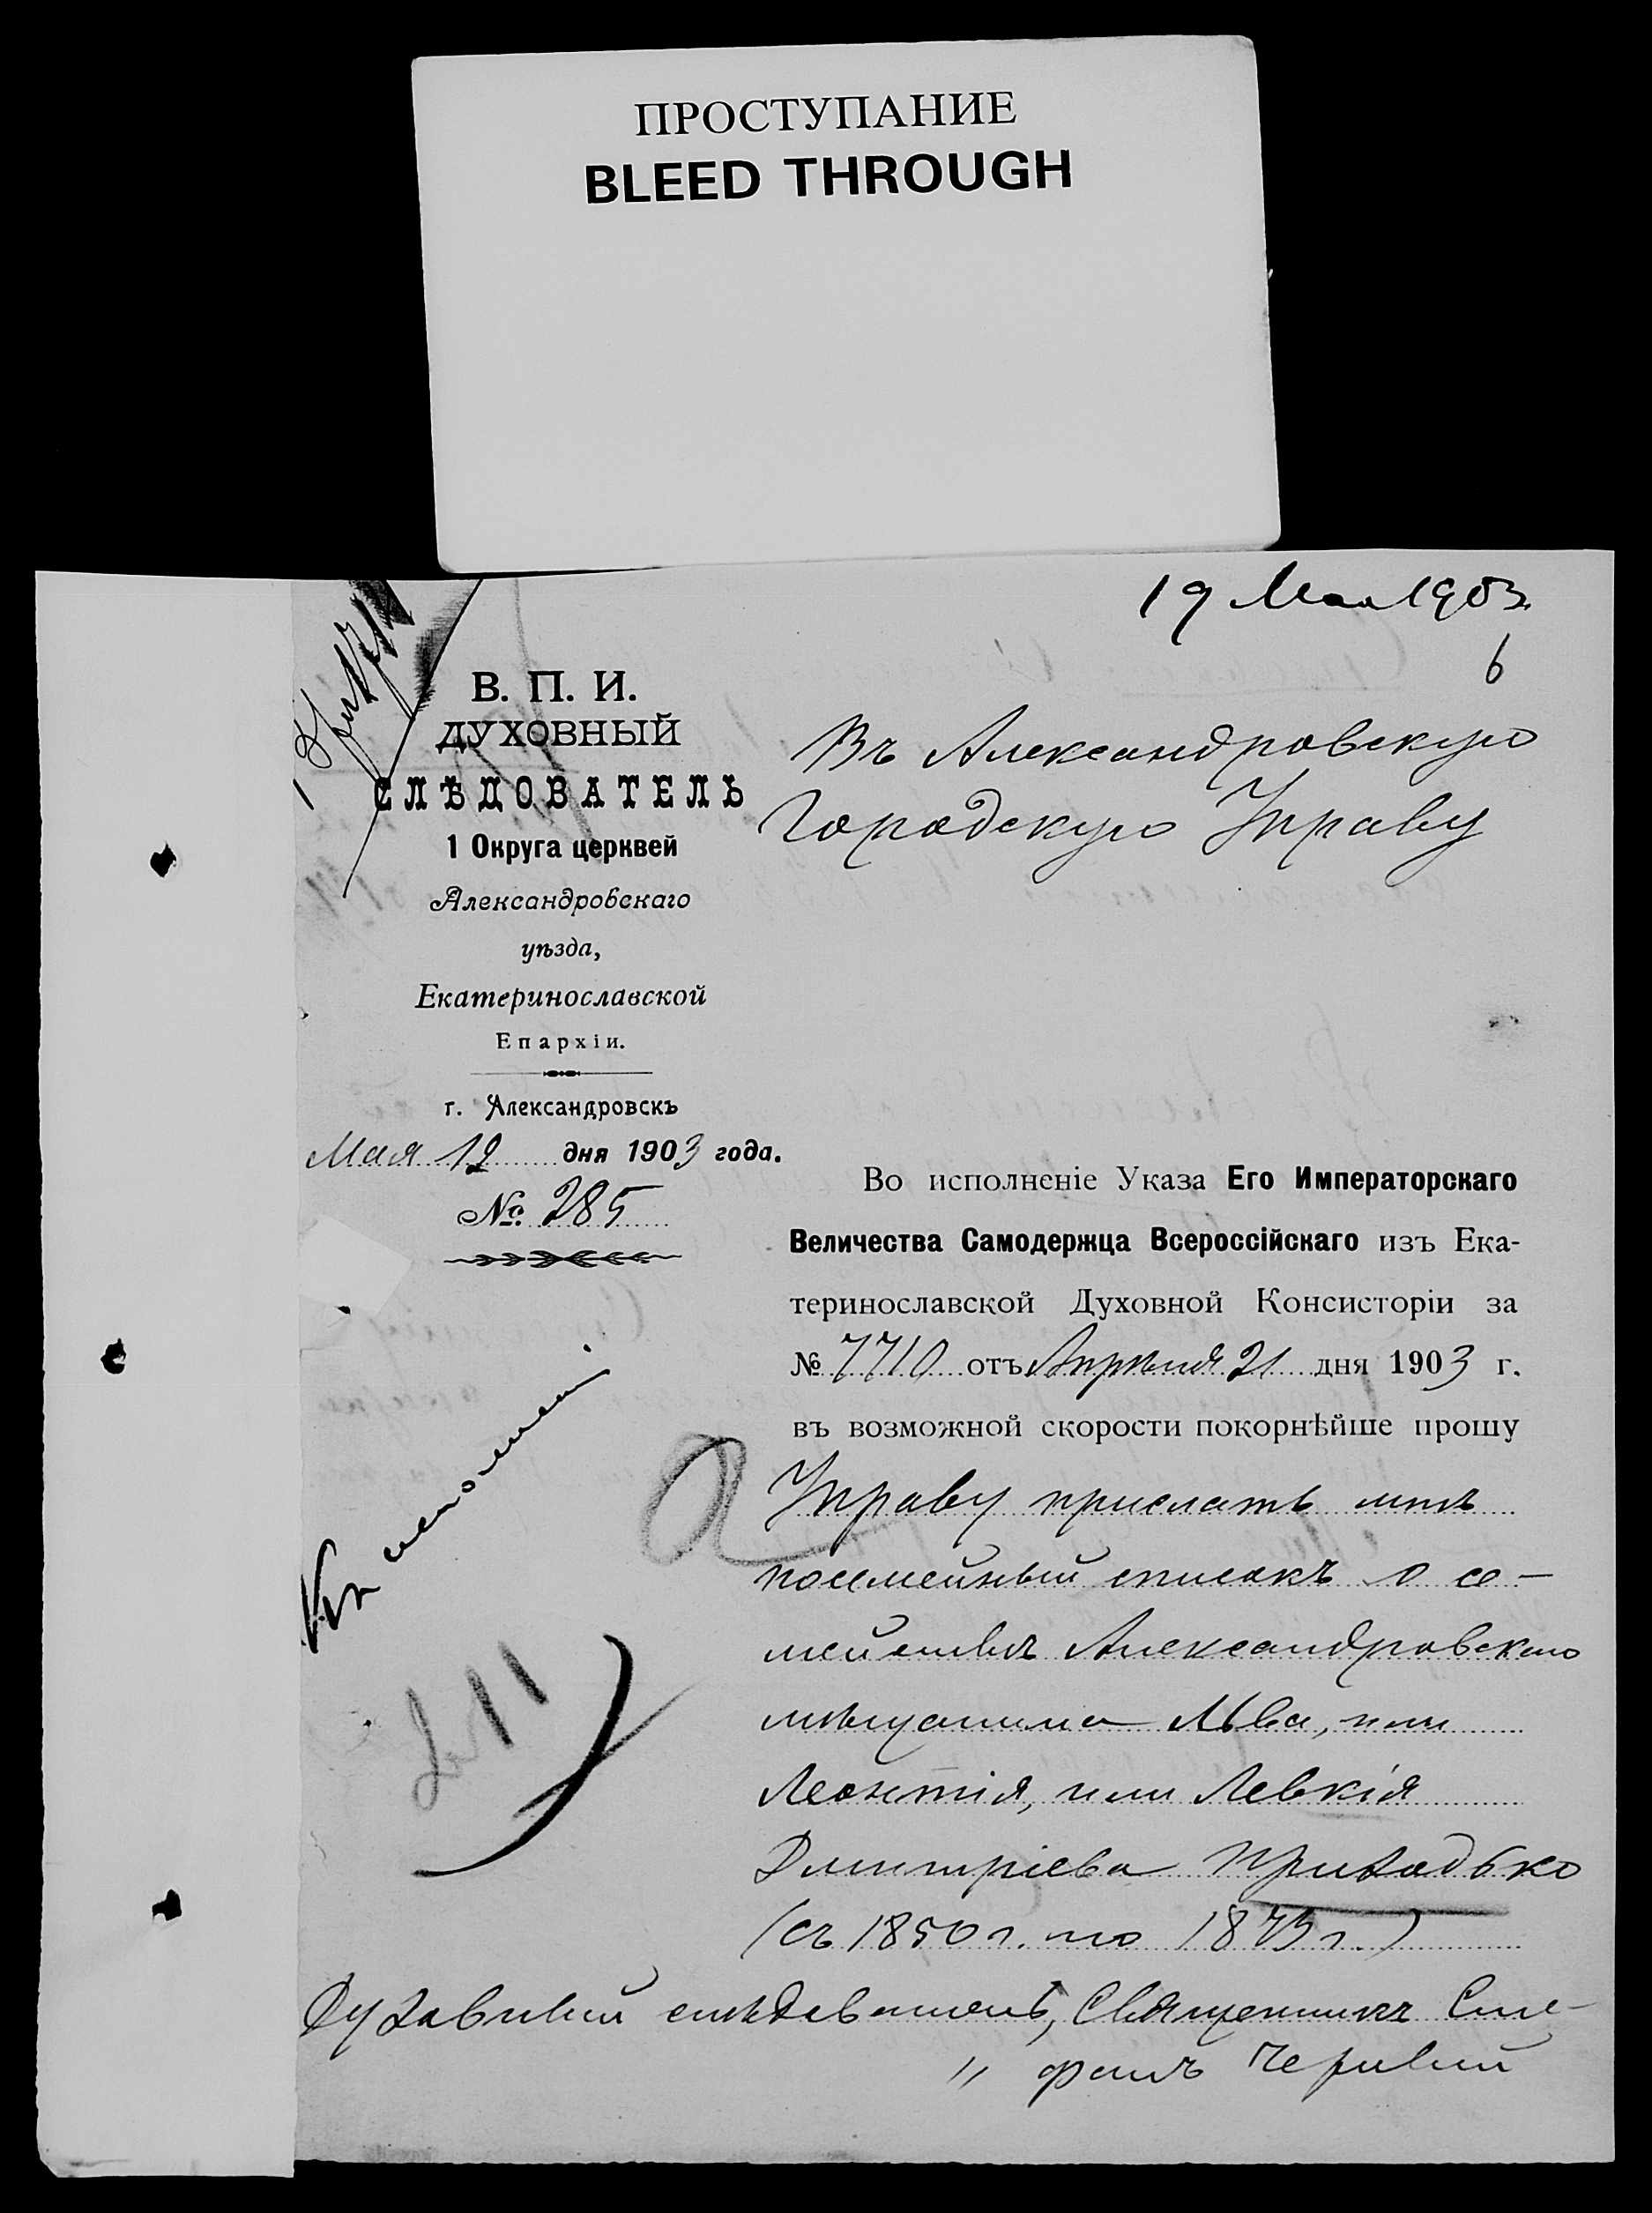 ПРОСТУПАНИЕ
BLEED THROUGH
19 Мая 1903.
6
В. П. И.
ДУХОВНЫЙ
СЛѢДОВАТЕЛЬ
1 Округа церквей
Александровскаго
уѣзда,
Екатеринославской
Епархіи.
г. Александровскъ
Мая 12 дня 1903 года.
№ 285
Въ Александровскую
Городскую Управу
Во исполненіе Указа Его Императорскаго
Величества Самодержца Всероссійскаго изъ Ека-
теринославской Духовной Консисторіи за
№ 7710 отъ Апрѣля 21 дня 1903 г.
въ возможной скорости покорнѣйше прошу
Управу прислать мнѣ
посемейный списокъ о се-
мействѣ Александровскаго
мѣщанина Льва, или
Леонтія, или Левкія
Дмитріева Приходько
(съ 1850 г. по 1875 г.)
Духовный слѣдователь, Священникъ Сте-
" фанъ
Къ исполненію